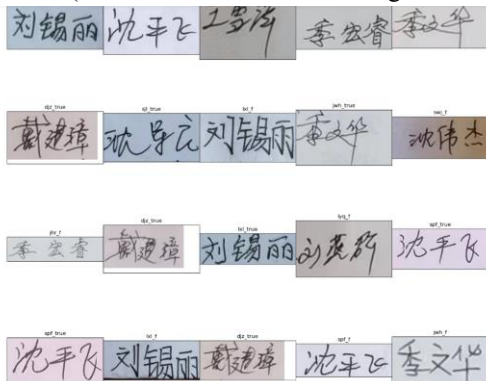 刘锡丽 沈平飞 季宏睿 季文华
djz_true sjl_true lxl_f jwh_true swj_f
戴建璋 沈导云 刘锡丽 季文华 沈伟杰
djz_true lxl_f spf_true
季宏睿 戴建璋 刘锡丽 刘燕舒 沈平飞
spf_true lxl_f djz_true spf_f jwh_f
沈平飞 刘锡丽 戴建璋 沈平飞 季文华